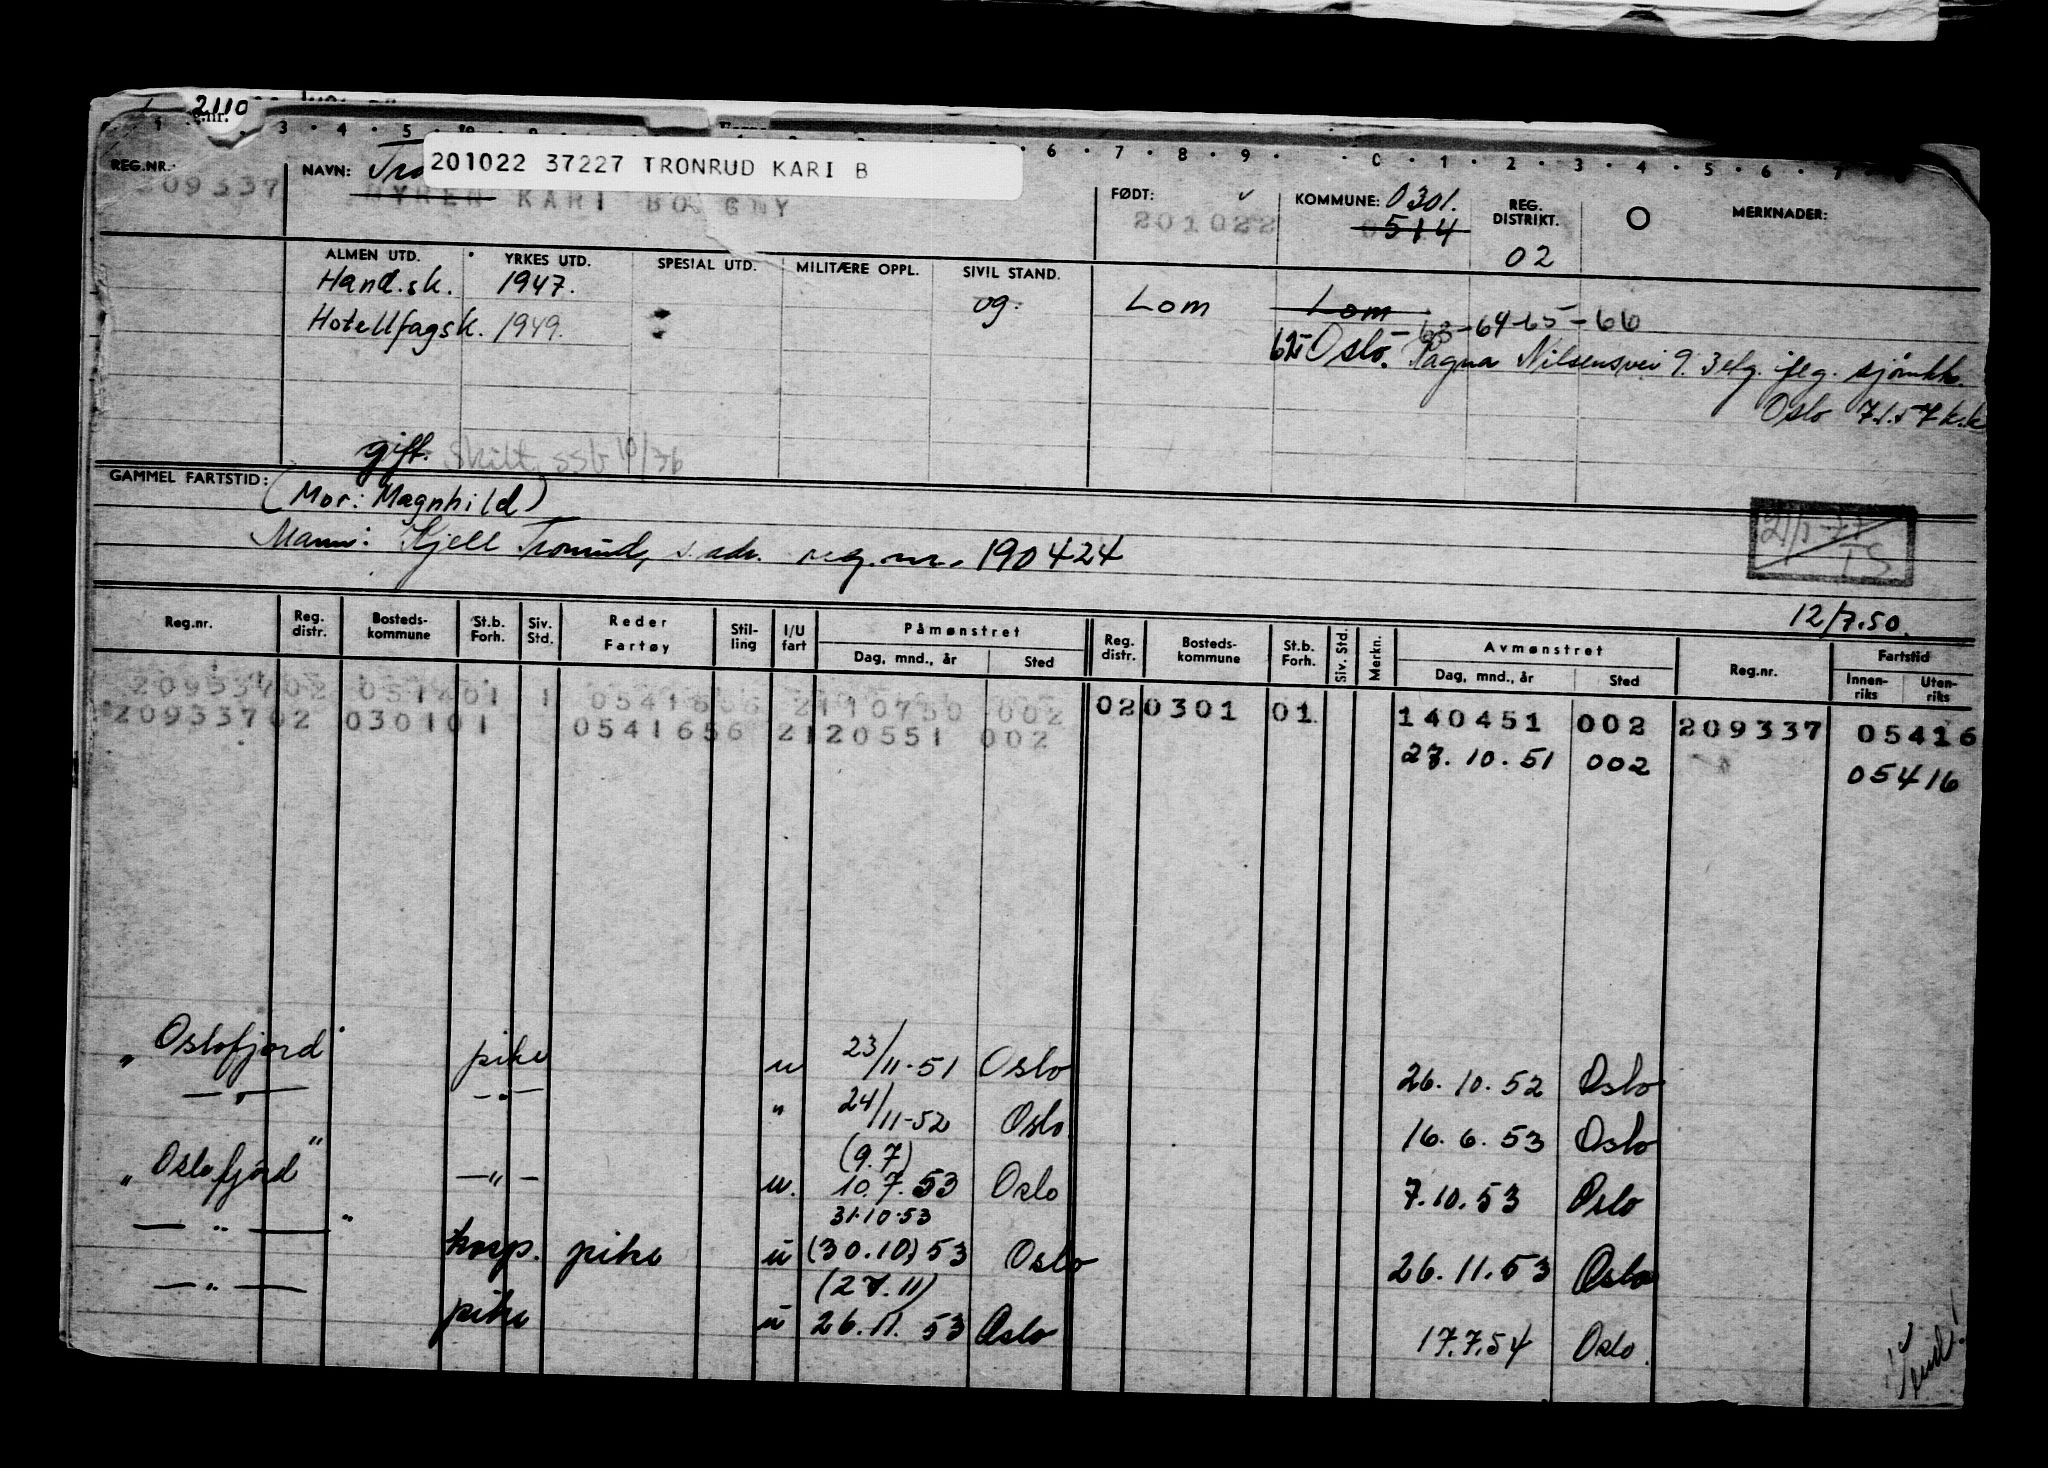 2110
nr.
201022 37227 TRONRUD KARI B
REG.NR. NAVN: FØDT: KOMMUNE: 0301. REG. DISTRIKT. O MERKNADER:
209337 MYREN KARI 201022 0514 02
ALMEN UTD. YRKES UTD. SPESIAL UTD. MILITÆRE OPPL. SIVIL STAND.
Hand.sk. 1947. og. Lom Lom
Hotellfagsk. 1949. 62 Oslo. -63-64-65-66
Ragna Nilsensvei 9. 3 elg. iflg. sjømkk.
Oslo 7.1.57 k.k
gift. Skilt, SSB 10/76
GAMMEL FARTSTID: (Mor: Magnhild)
Mann: Kjell Tronrud, s. adr. reg.nr. 190424
TS
12/7.50.
Reg.nr. Reg. distr. Bosteds-kommune St.b. Forh. Siv. Std. Reder Fartøy Stil-ling I/U fart Påmønstret Dag, mnd., år Sted Reg. distr. Bosteds-kommune St.b. Forh. Siv. Std. Merkn. Avmønstret Dag, mnd., år Sted Reg.nr. Fartstid Innen-riks Uten-riks
209337 02 0514 01 1 0541656 2110750 002 02 0301 01 140451 002 209337 05416
209337 02 0301 01 0541656 2120551 002 27.10.51 002 05416
"Oslofjord" pike u 23/11.51 Oslo 26.10.52 Oslo
— " — — " — " 24/11-52 Oslo 16.6.53 Oslo
(9.7)
"Oslofjord" — " — u. 10.7.53 Oslo 7.10.53 Oslo
31.10.53
— " — " korp. pike u (30.10) 53 Oslo 26.11.53 Oslo
(27.11)
— " — pike u 26.11.53 Oslo 17.7.54 Oslo.